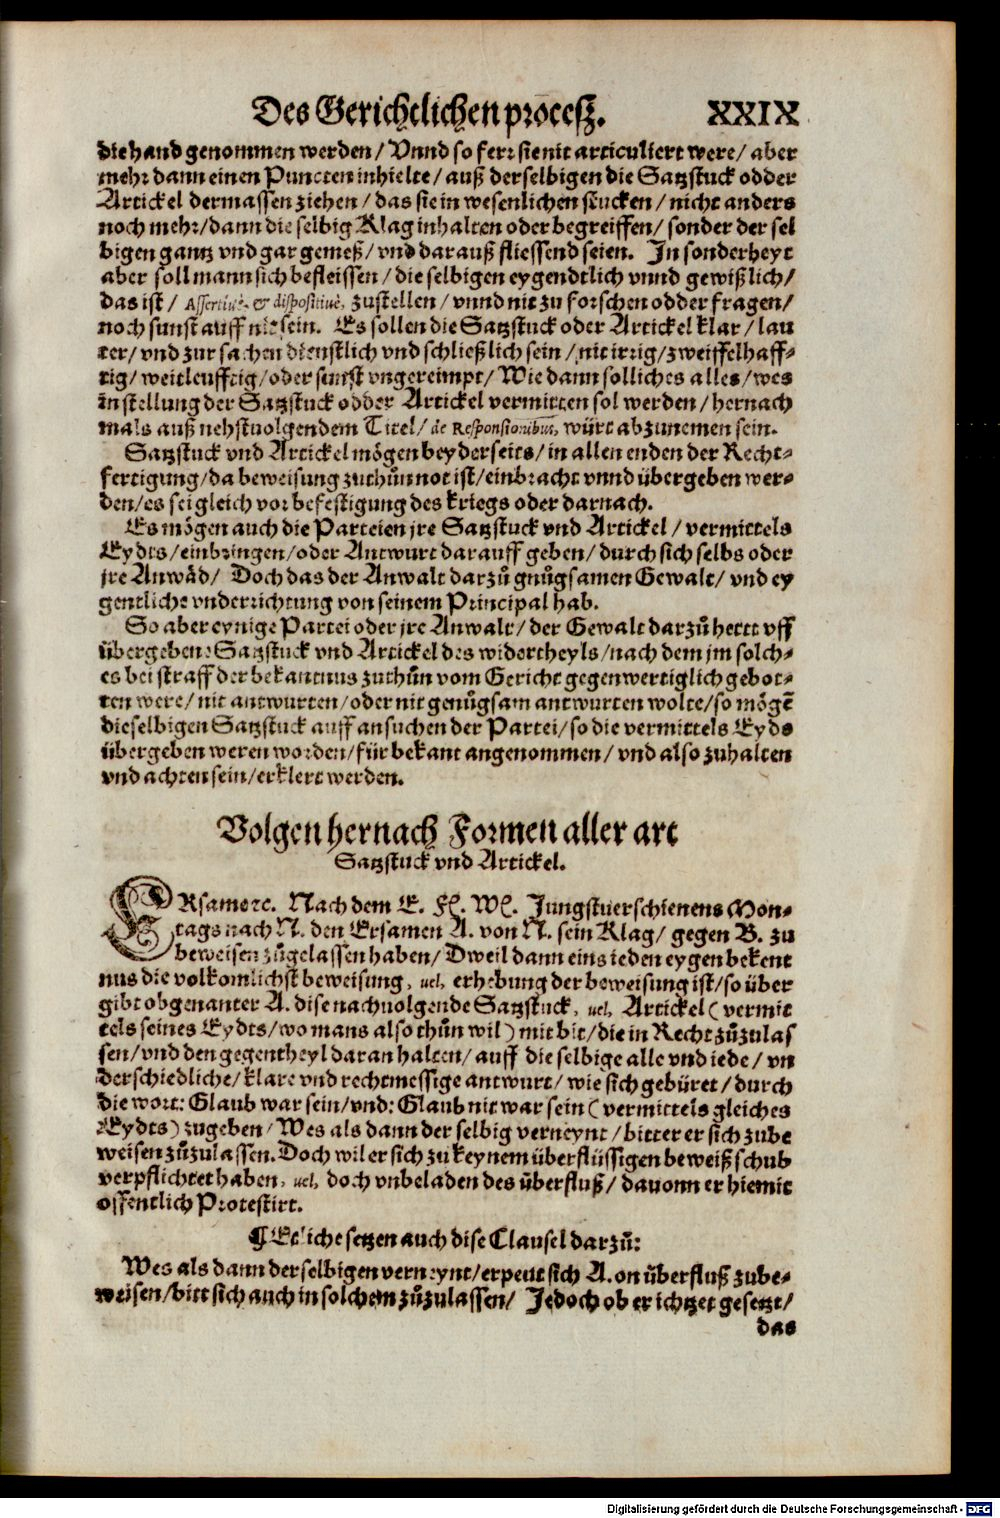 Des Gerichtlichen proceſʒ. XXIX
die hand genommen werden / Vnnd so ferr sie nit articuliert were / aber
mehr dann einen Puncten inhielte / auß derselbigen die Satzstuck odder
Artickel dermassen ziehen / das sie in wesenlichen stucken / nicht anders
noch mehr / dann die selbig Klag inhalten oder begreiffen / sonder der sel
bigen gantz vnd gar gemeß / vnd darauß fliessend seien. In sonderheyt
aber soll mann sich befleissen / die selbigen eygendtlich vnnd gewißlich /
das ist / Assertiuè & dispositiuè, zustellen / vnnd nit zu forschen odder fragen /
noch sunst auff nit sein. Es sollen die Satzstuck oder Artickel klar / lau
ter / vnd zur sachen dienstlich vnd schließlich sein / nit irrig / zweiffelhaff⸗
tig / weitleufftig / oder sunst vngereimpt / Wie dann solliches alles / wes
in stellung der Satzstuck odder Artickel vermitten sol werden / hernach
mals auß nehstuolgendem Titel / de Responsionibus, würt abzunemen sein.
Satzstuck vnd Artickel mögen beyderseits / in allen enden der Recht⸗
fertigung / da beweisung zuthůn not ist / einbracht vnnd übergeben wer⸗
den / es sei gleich vor befestigung des kriegs oder darnach.
Es mögen auch die Parteien jre Satzstuck vnd Artickel / vermittels
Eydts / einbringen / oder Antwurt darauff geben / durch sich selbs oder
jre Anwäd / Doch das der Anwalt darzů gnůgsamen Gewalt / vnd ey
gentliche vnderrichtung von seinem Principal hab.
So aber eynige Partei oder jre Anwalt / der Gewalt darzů hett vff
übergebene Satzstuck vnd Artickel des widertheyls / nach dem jm solch⸗
es bei straff der bekantnus zuthůn vom Gericht gegenwertiglich gebot⸗
ten were / nit antwurten / oder nit genůgsam antwurten wolte / so mögē
dieselbigen Satzstuck auff ansuchen der Partei / so die vermittels Eyds
übergeben weren worden / für bekant angenommen / vnd also zuhalten
vnd achten sein / erklert werden.
Volgen hernach Formen aller art
Satzstuck vnd Artickel.
ERsame ꝛc. Nach dem E. F. W. Jungstuerschienens Mon⸗
tags nach N. den Ersamen A. von N. sein Klag / gegen B. zu
beweisen zůgelassen haben / Dweil dann eins ieden eygen bekent
nus die volkomlichst beweisung, uel, erhebung der beweisung ist / so über
gibt obgenanter A. dise nachuolgende Satzstuck, uel, Artickel ( vermit
tels seines Eydts / wo mans also thůn wil ) mit bit / die in Recht zůzulas
sen / vnd den gegentheyl daran halten / auff die selbige alle vnd iede / vn
derschiedliche / klare vnd rechtmessige antwurt / wie sich gebüret / durch
die wort: Glaub war sein / vnd: Glaub nit war sein ( vermittels gleiches
Eydts ) zugeben / Wes als dann der selbig verneynt / bittet er sich zube
weisen zůzulassen. Doch wil er sich zu keynem überflüssigen beweiß schub
verpflichtet haben, uel, doch vnbeladen des überfluß / dauonn er hiemit
offentlich Protestirt.
¶ Etliche setzen auch dise Clausel darzů:
Wes als dann der selbigen verneynt / erpeut sich A. on überfluß zube⸗
weisen / bitt sich auch in solchem zůzulassen / Jedoch ob er ichtzet gesetzt /
das
Digitalisierung gefördert durch die Deutsche Forschungsgemeinschaft - DFG